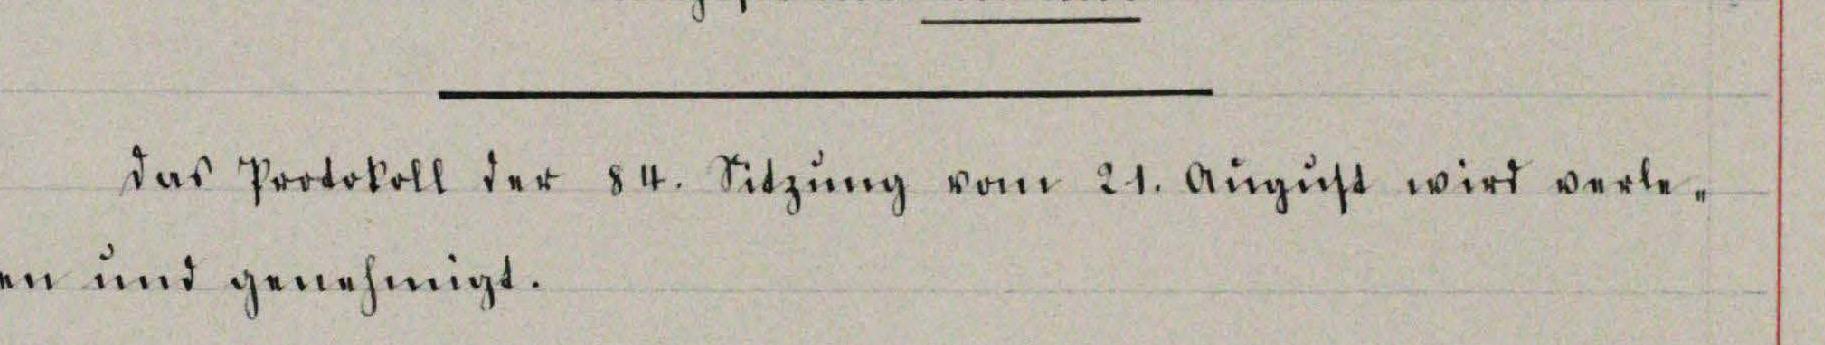 Das Protokoll der 84. Sitzung vom 21. August wird verle„
en und genehmigt.